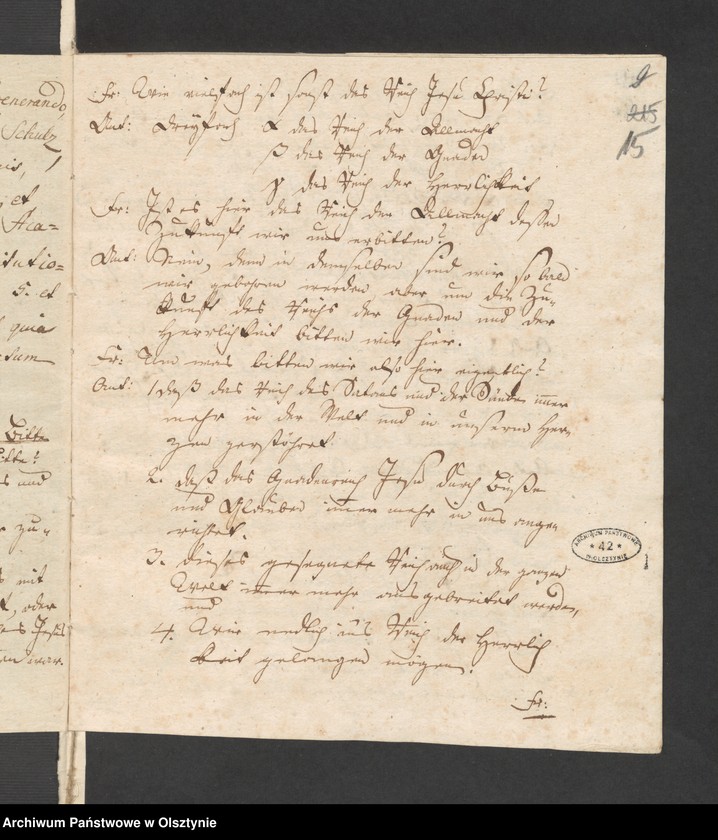 Fr: Wie vielfach ist sonst das Reich Jesu Christi?
Ant: Dreyfach α das Reich der Allmacht
β das Reich der Gnaden
γ das Reich der Herrlichkeit
Fr: Ist es hier das Reich der Allmacht dessen
Zukunft wir uns erbitten?
Ant: Nein, denn in demselben sind wir so bald
wir gebohren werden aber um die Zu-
kunft des Reichs der Gnaden und der
Herrlichkeit bitten wir hier.
Fr: Um was bitten wir also hier eigentlich?
Ant: 1, daß das Reich des Satans und der Sünden immer
mehr in der Welt und in unserm Her-
zen zerstöhret
2. daß das Gnadenreich Jesu durch Buße
und Glauben immer mehr in uns ange-
richtet.
3. dieses gesegnete Reich auch in der ganzen
Welt immer mehr ausgebreitet werden,
und
4. Wir endlich ins Reich der Herrlich
keit gelangen mögen.
Fr:
9
215
15
ARCHIWUM PAŃSTWOWE
* 42 *
W OLSZTYNIE
enerando,
Schulz
et
Aca=
itutio=
5. et
quia
sum
Bitte
itte?
und
zu=
mit
, oder
Jesu
war.
Archiwum Państwowe w Olsztynie